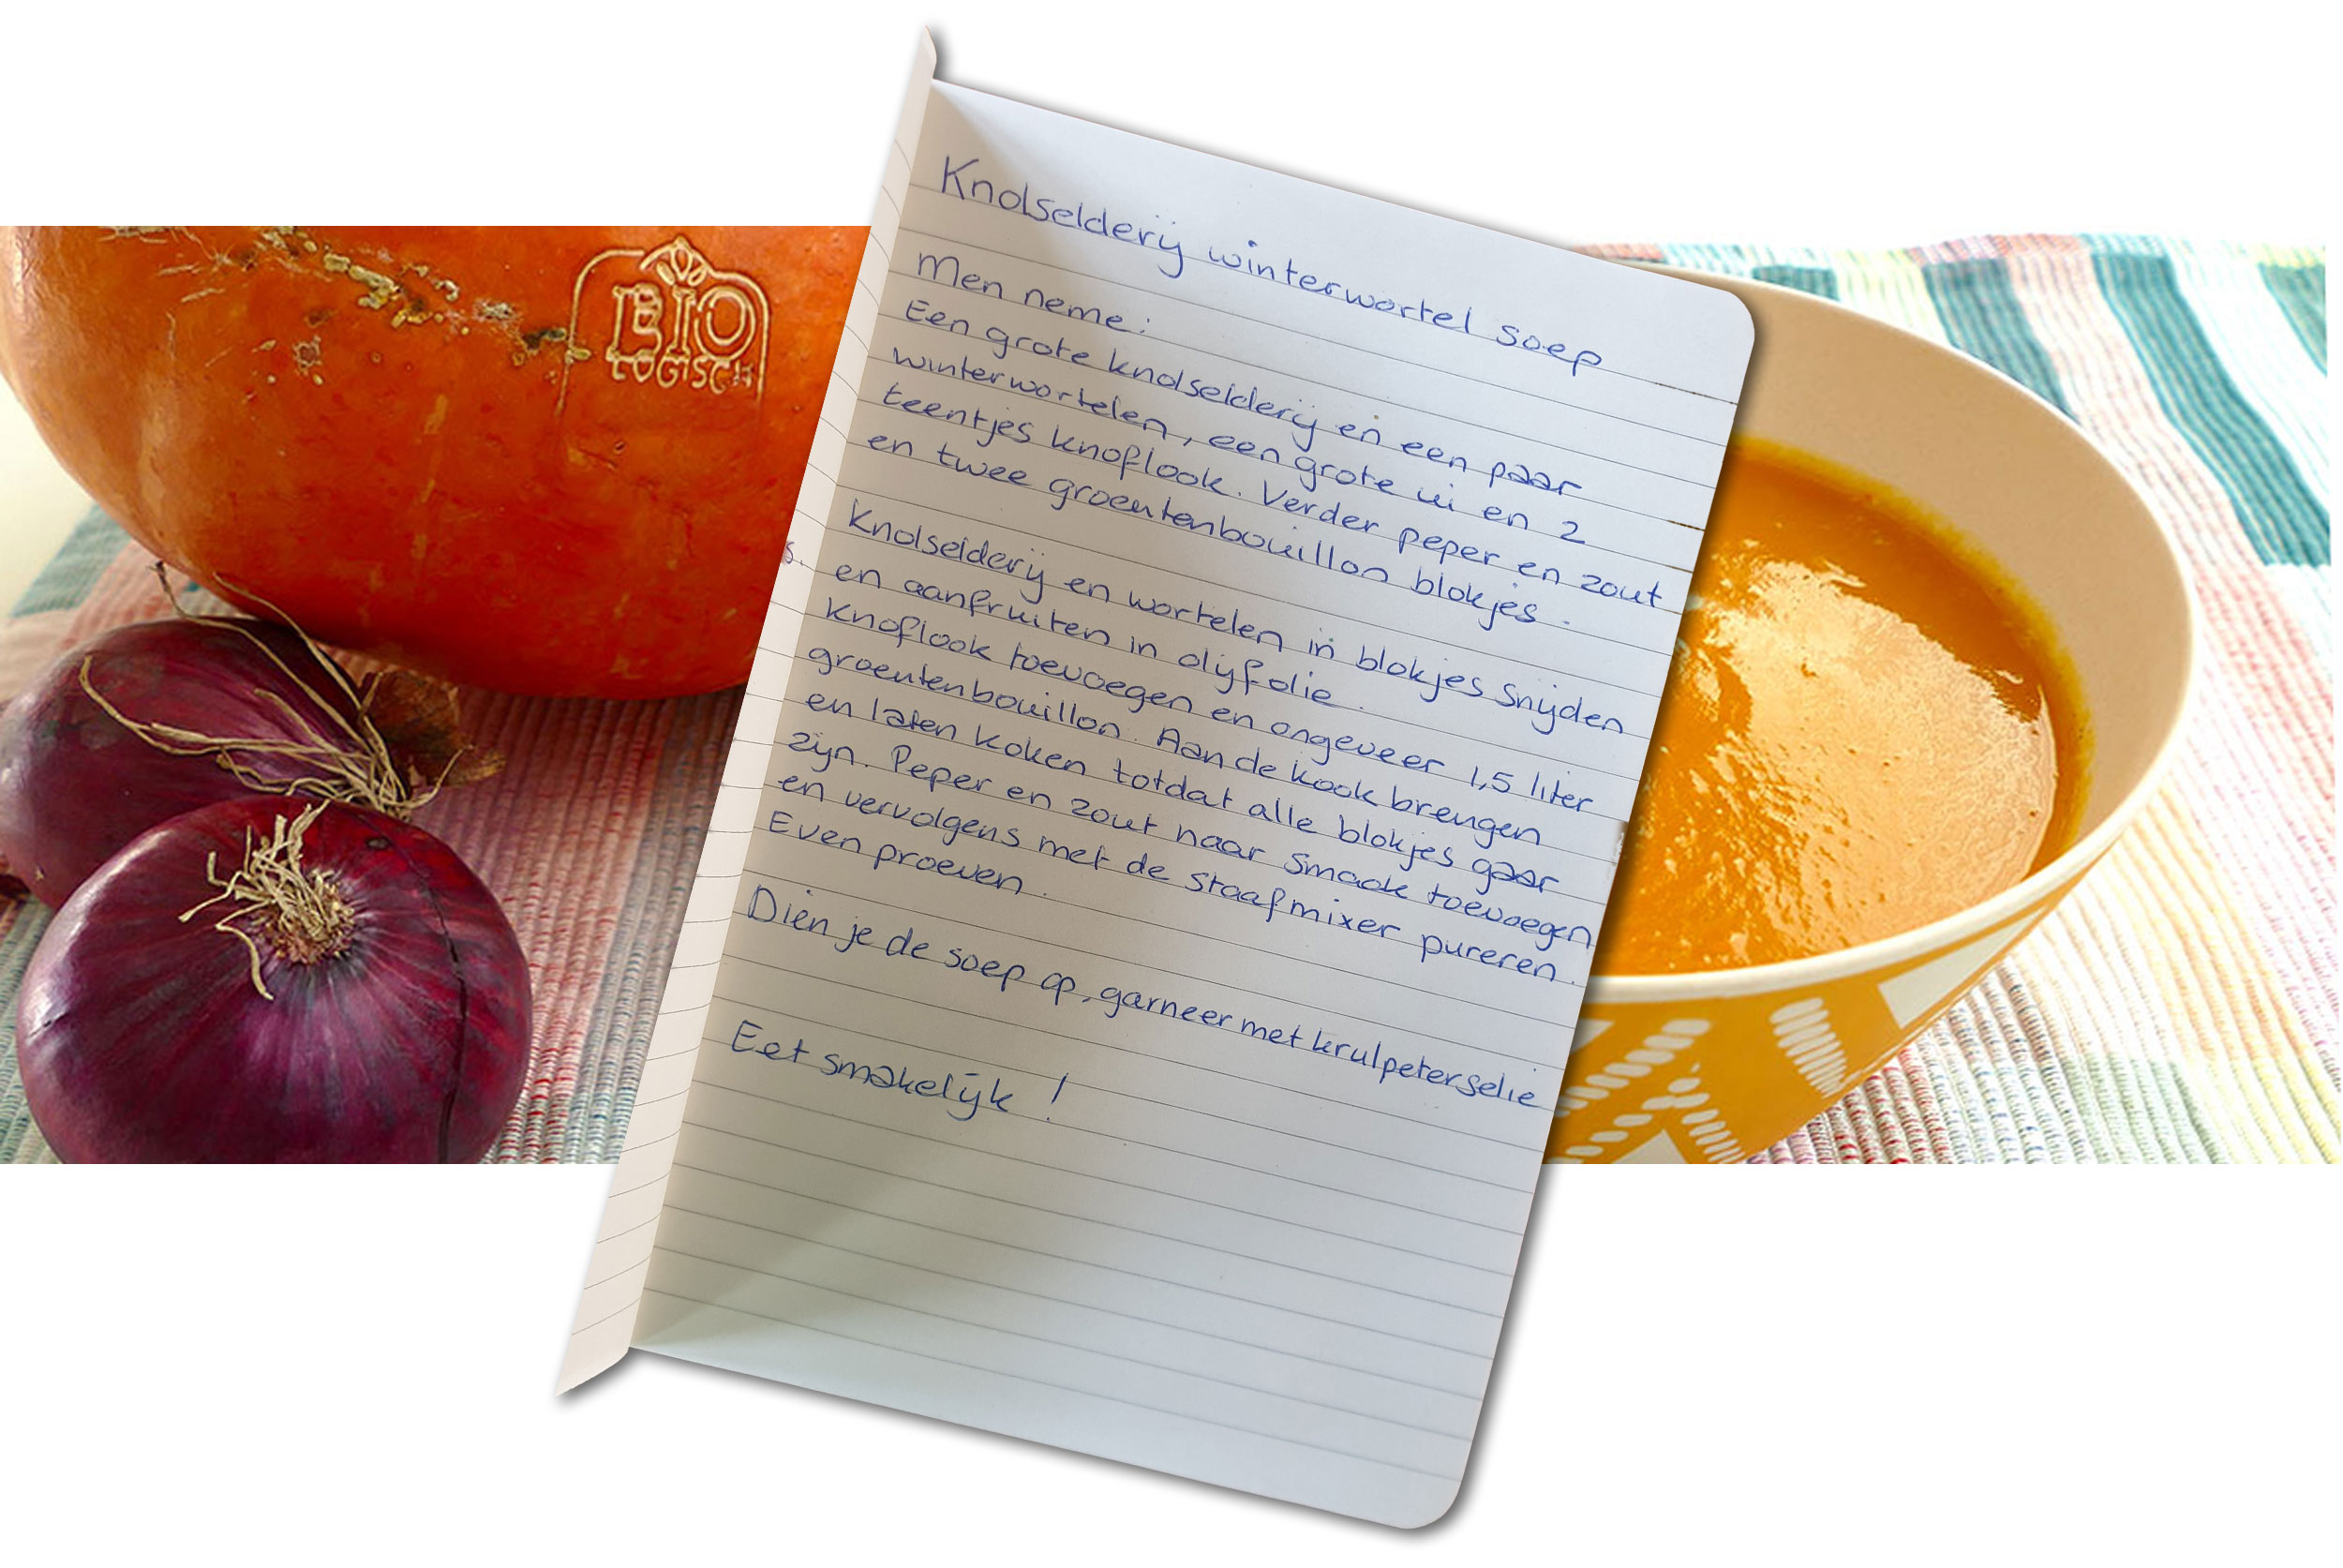 BIO
LOGISCH
Knolselderij winterwortel soep
Men neme:
Een grote knolselderij en een paar
winterwortelen, een grote ui en 2
teentjes knoflook. Verder peper en zout
en twee groentenbouillon blokjes.
Knolselderij en wortelen in blokjes snijden
en aanfruiten in olijfolie.
Knoflook toevoegen en ongeveer 1,5 liter
groentenbouillon. Aan de kook brengen
en laten koken totdat alle blokjes gaar
zijn. Peper en zout naar smaak toevoegen
en vervolgens met de staafmixer pureren.
Even proeven.
Dien je de soep op, garneer met krulpeterselie
Eet smakelijk !